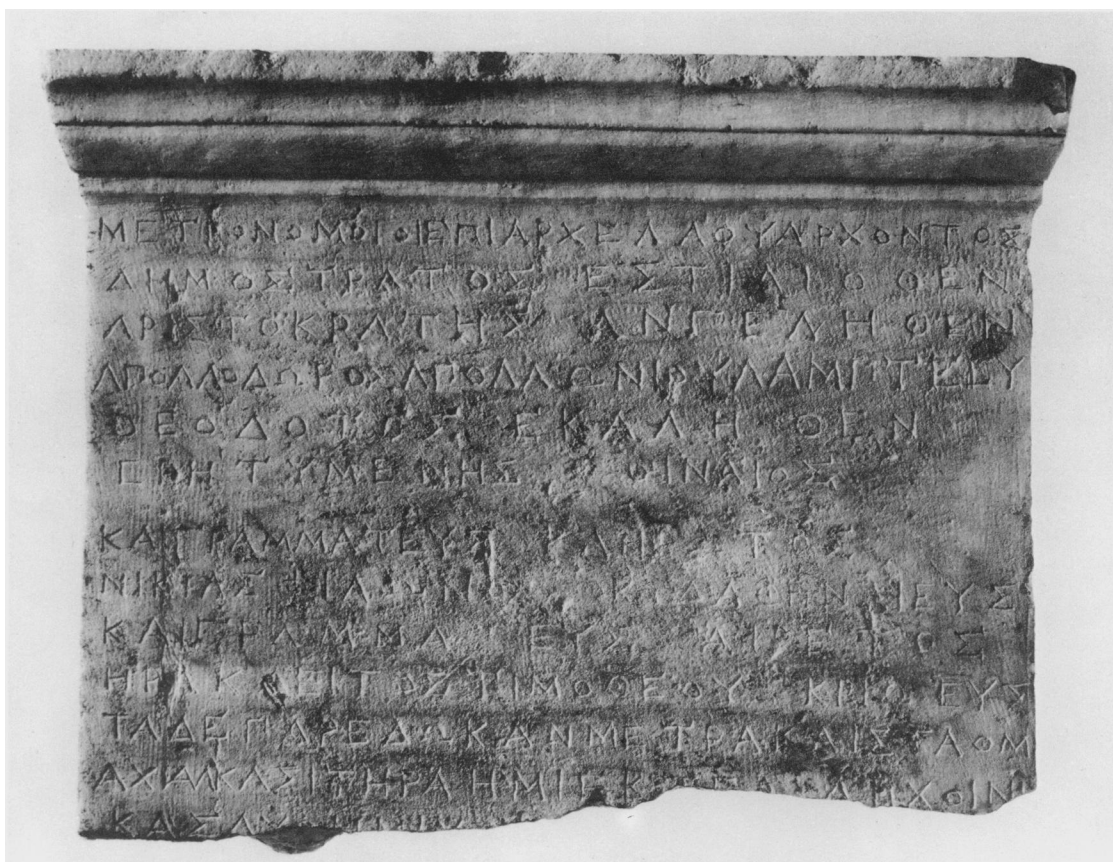 ΜΕΤΡΟΝΟΜΟΙ ΟΙ ΕΠΙ ΑΡΧΕΛΑΟΥ ΑΡΧΟΝΤΟΣ
ΔΗΜΟΣΤΡΑΤΟΣ ΕΣΤΙΑΙΟΘΕΝ
ΑΡΙΣΤΟΚΡΑΤΗΣ ΑΝΓΕΛΗΘΕΝ
ΑΠΟΛΛΟΔΩΡΟΣ ΑΠΟΛΛΩΝΙΟΥ ΛΑΜΠΤΕΥ
ΘΕΟΔΟΤΟΣ ΕΚΑΛΗΘΕΝ
ΠΡΗΤΥΜΕΝΗΣ ΟΙΝΑΙΟΣ
ΚΑΙ ΓΡΑΜΜΑΤΕΥΣ ΚΛΗΡΩΤΟΣ
ΝΙΚΙΑΣ ΚΥΔΑΘΗΝΑΙΕΥΣ
ΚΑΙ ΓΡΑΜΜΑΤΕΥΣ ΑΙΡΕΤΟΣ
ΗΡΑΚΛΕΙΤΟΣ ΤΙΜΟΘΕΟΥ ΚΡΙΩΕΥΣ
ΤΑΔΕ ΠΑΡΕΔΩΚΑΝ ΜΕΤΡΑ ΚΑΙ ΣΤΑΘΜ
Α ΧΑΛΚΑ ΣΙΤΗΡΑ
ΚΑΣ